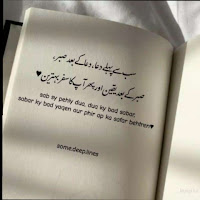 سب سے پہلے دعا، دعا کے بعد صبر،
صبر کے بعد یقین اور پھر آپ کا سفر بہترین♥
sab sy pehly dua, dua ky bad sabar,
sabar ky bad yaqen aur phir ap ka safar behtren♥
some.deep.lines